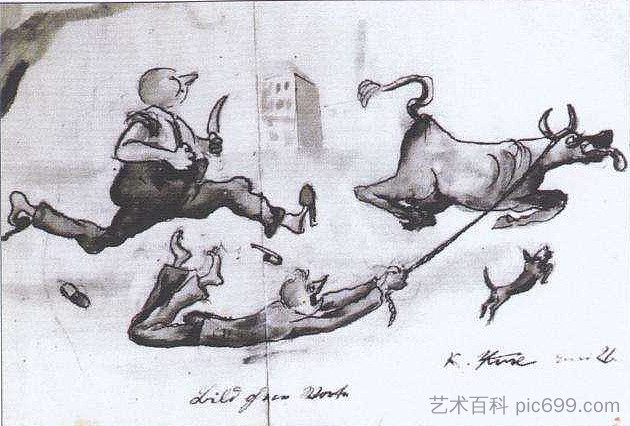 K. 26
Bild ohne Worte
艺术百科 pic699.com